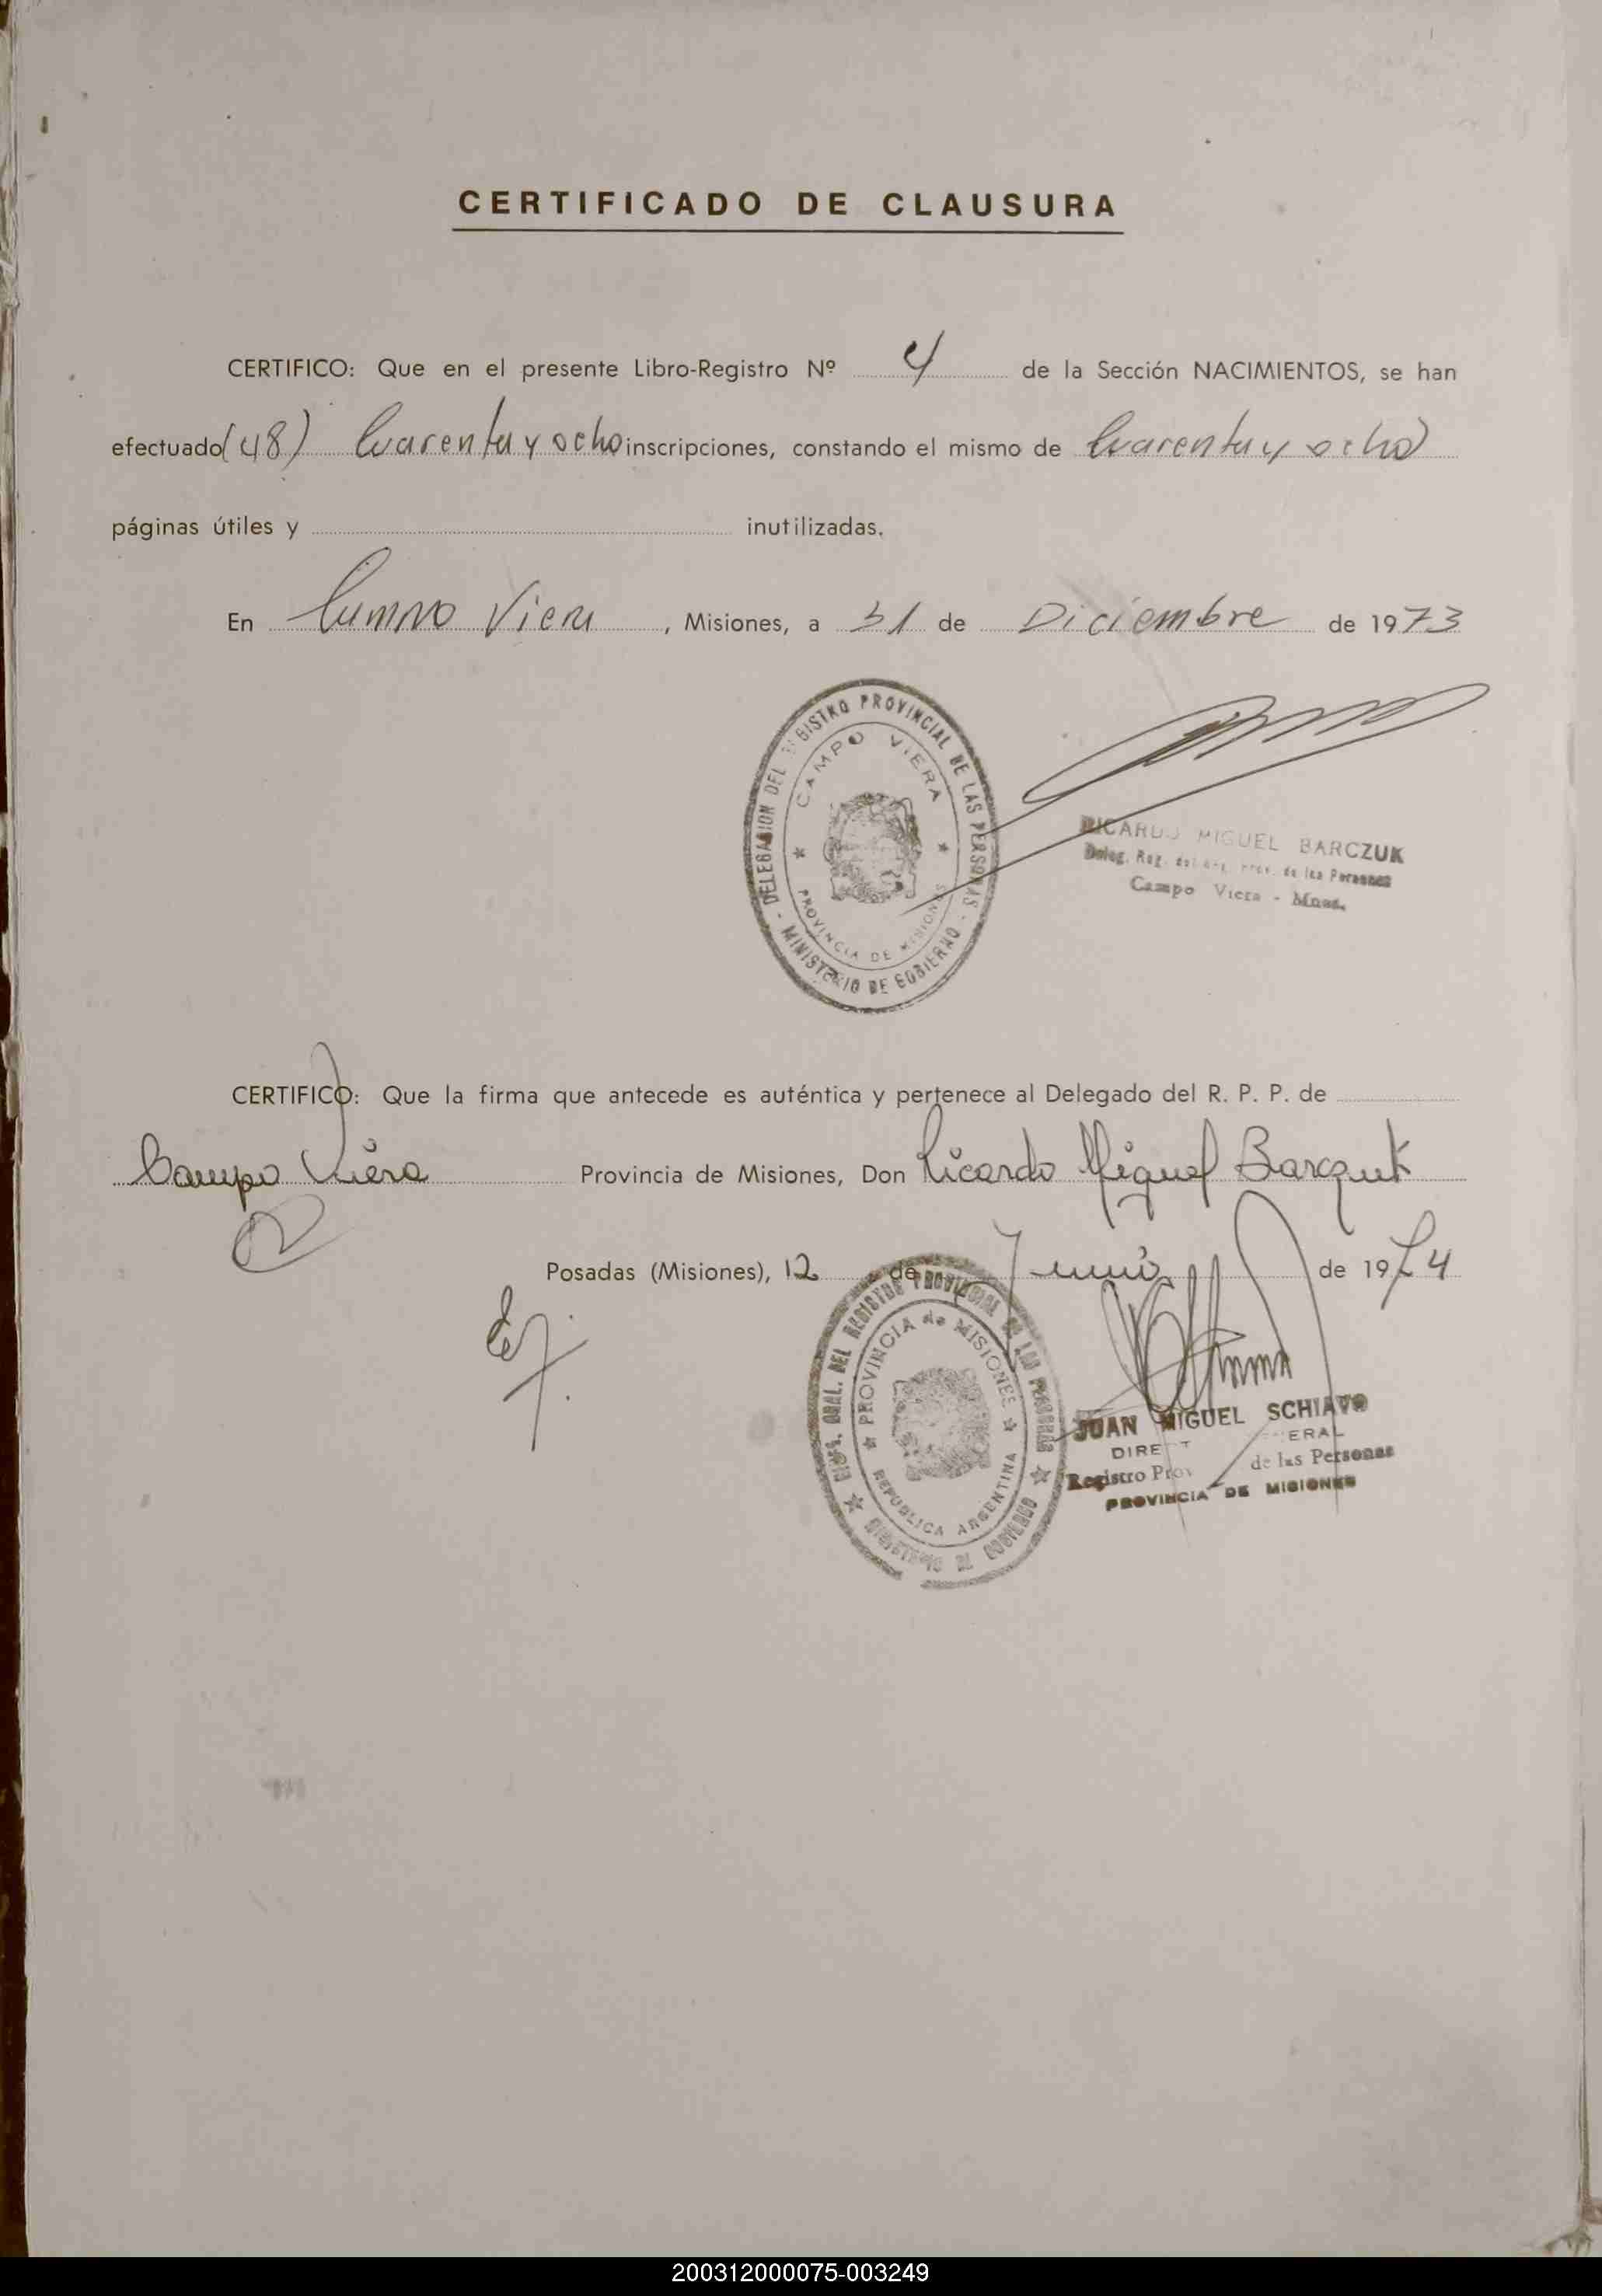 CERTIFICADO DE CLAUSURA
CERTIFICO: Que en el presente Libro-Registro Nº 4 de la Sección NACIMIENTOS, se han
efectuado (48) Cuarenta y ocho inscripciones, constando el mismo de Cuarenta y ocho
páginas útiles y inutilizadas.
En Campo Viera, Misiones, a 31 de Diciembre de 1973
DELEGACION DEL REGISTRO PROVINCIAL DE LAS PERSONAS - MINISTERIO DE GOBIERNO -
CAMPO VIERA
PROVINCIA DE MISIONES
RICARDO MIGUEL BARCZUK
Deleg. Reg. Prov. de las Personas
Campo Viera - Mnes.
CERTIFICO: Que la firma que antecede es auténtica y pertenece al Delegado del R. P. P. de
Campo Viera Provincia de Misiones, Don Ricardo Miguel Barczuk
Posadas (Misiones), 12 de Junio de 1974
GRAL. DEL REGISTRO PROVINCIAL DE LAS PERSONAS ★ MINISTERIO DE GOBIERNO ★
PROVINCIA de MISIONES
REPUBLICA ARGENTINA
JUAN MIGUEL SCHIAVO
DIRE ERAL
Registro Prov de las Personas
PROVINCIA DE MISIONES
200312000075-003249